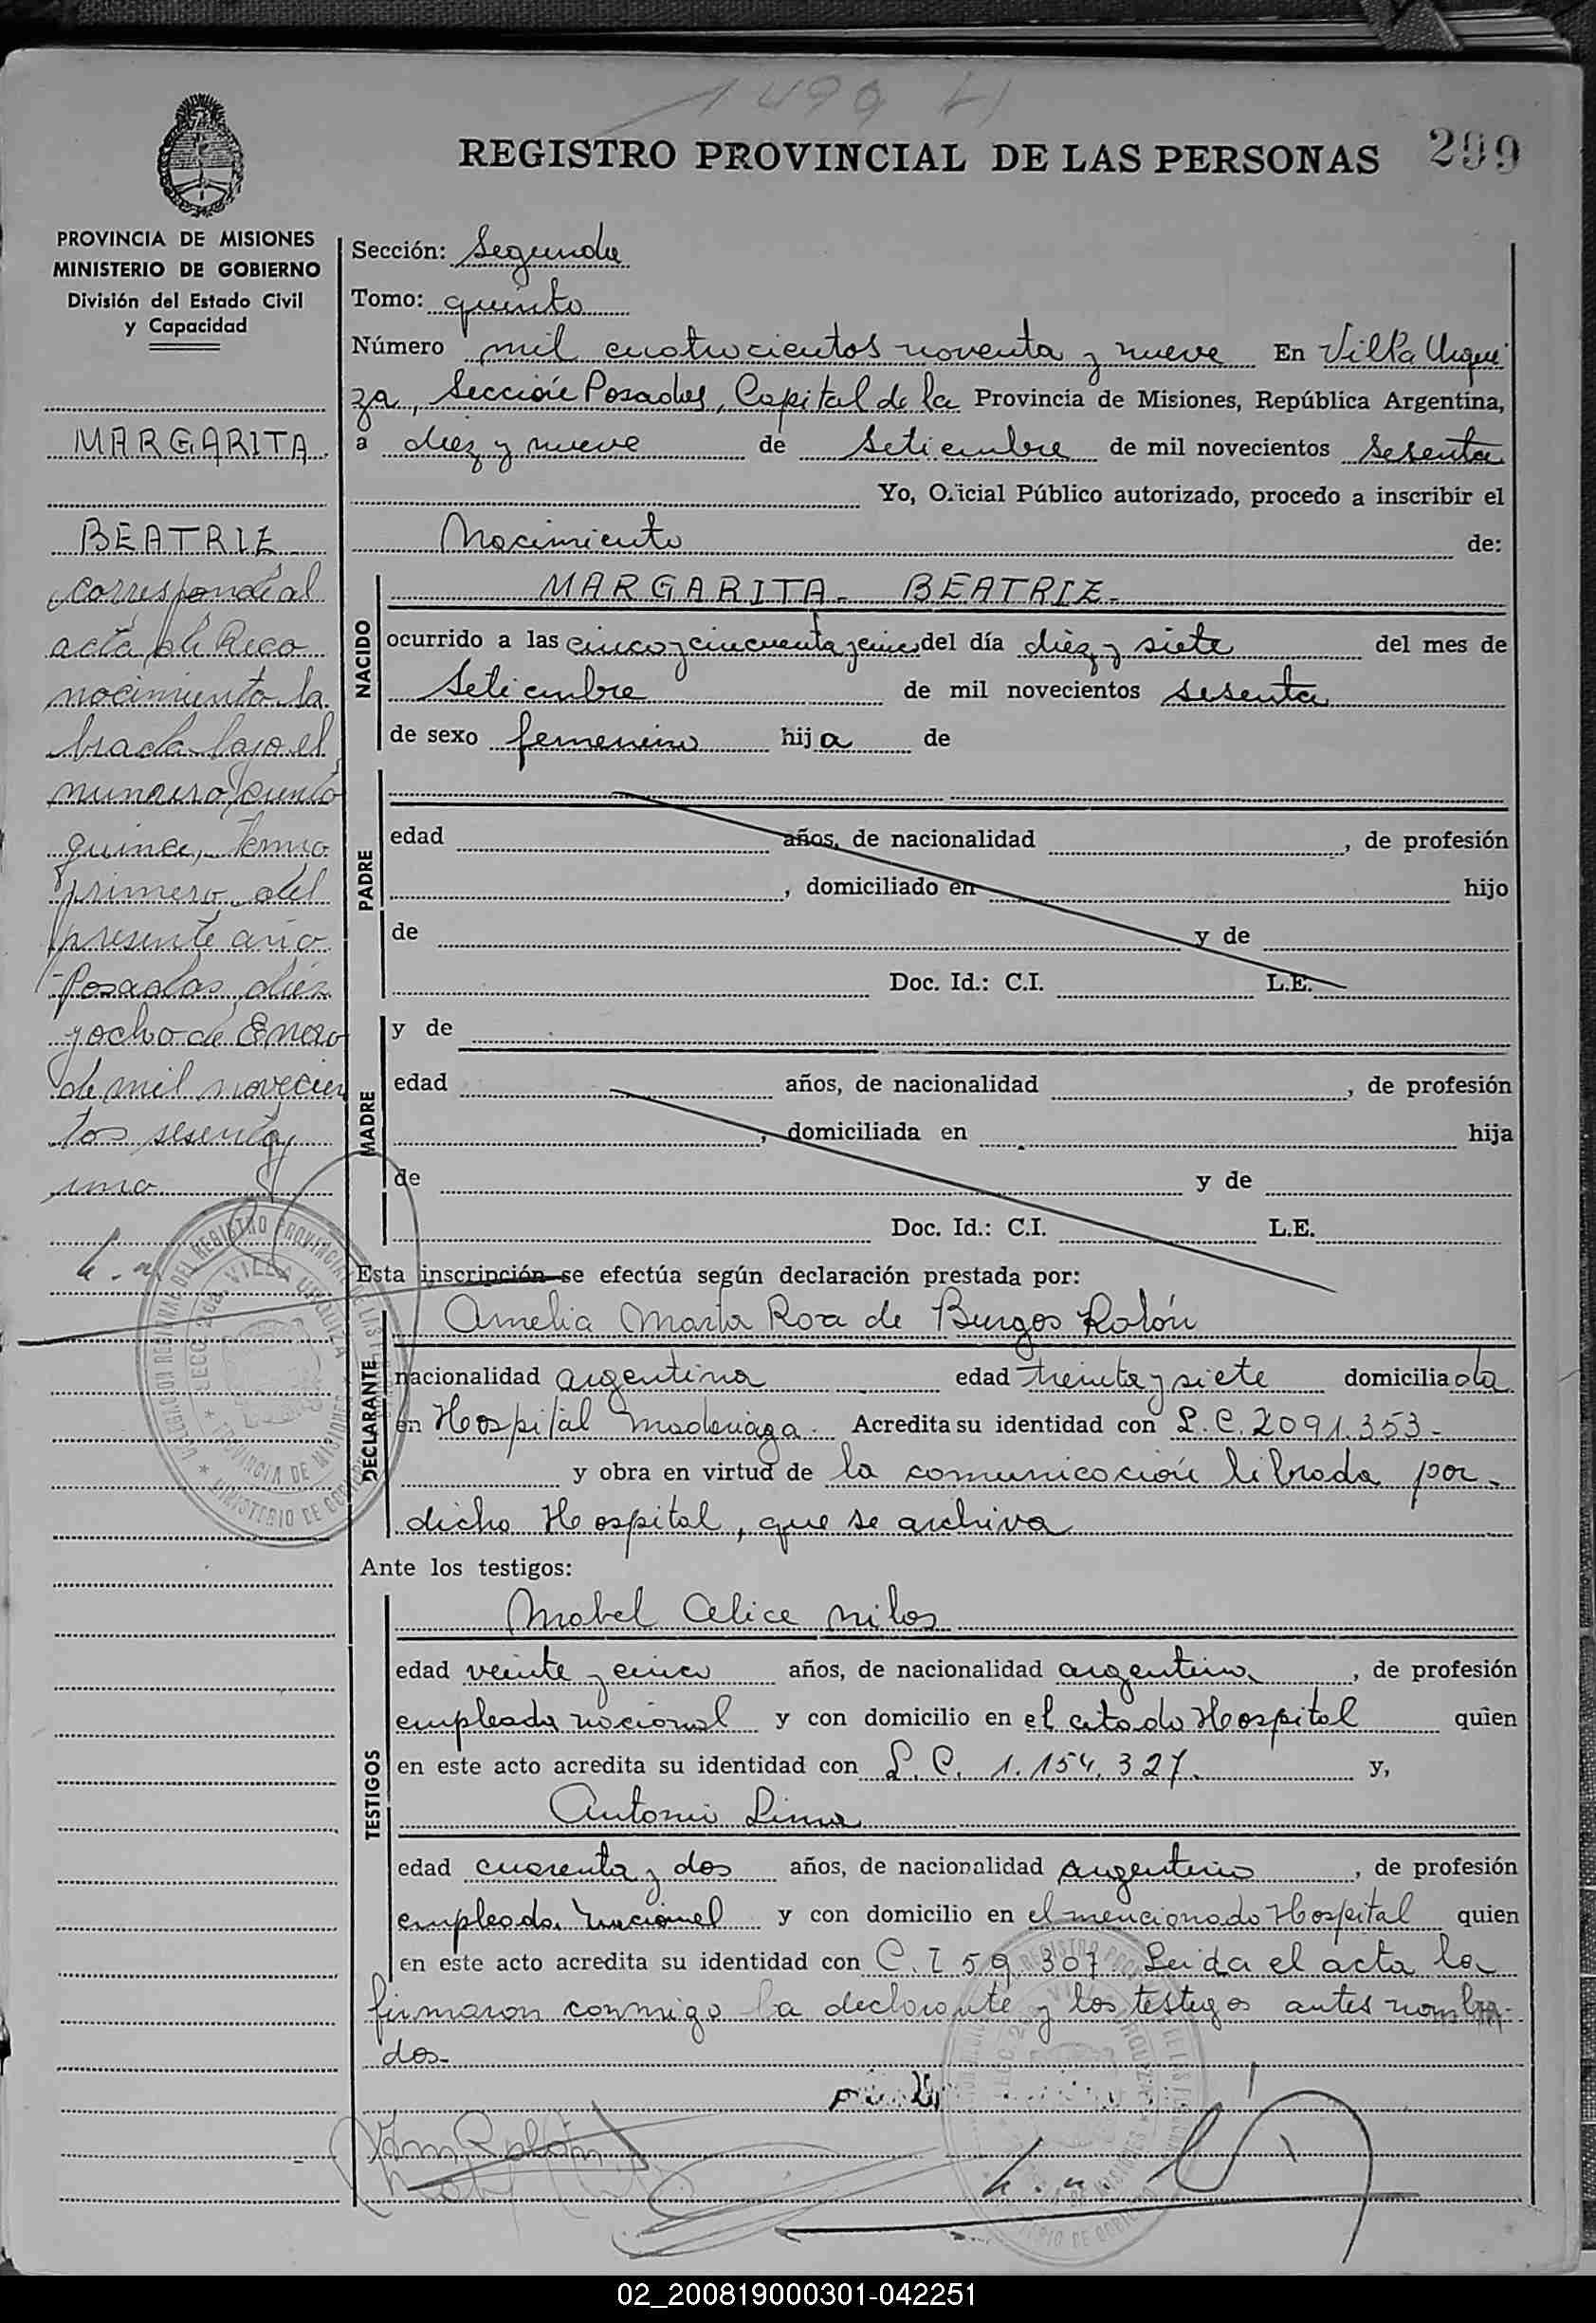 1499
REGISTRO PROVINCIAL DE LAS PERSONAS 299
PROVINCIA DE MISIONES
MINISTERIO DE GOBIERNO
División del Estado Civil
y Capacidad
MARGARITA
BEATRIZ
corresponde al
acta de Reco
nocimiento la
brada bajo el
numero ciento
quince, tomo
primero del
presente año
Posadas, diez
y ocho de Enero
de mil novecien
tos sesenta y
uno
Sección: Segunda
Tomo: quinto
Número mil cuatrocientos noventa y nueve En Villa Urqui
za, Sección Posadas, Capital de la Provincia de Misiones, República Argentina,
a diez y nueve de Setiembre de mil novecientos sesenta
Yo, Oficial Público autorizado, procedo a inscribir el
Nacimiento de:
NACIDO
MARGARITA - BEATRIZ -
ocurrido a las cinco y cincuenta y cinco del día diez y siete del mes de
Setiembre de mil novecientos sesenta
de sexo femenino hija de
PADRE
edad años, de nacionalidad , de profesión
, domiciliado en hijo
de y de
Doc. Id.: C.I. L.E.
MADRE
y de
edad años, de nacionalidad , de profesión
, domiciliada en hija
de y de
Doc. Id.: C.I. L.E.
Esta inscripción se efectúa según declaración prestada por:
DECLARANTE
Amelia Marta Roa de Burgos Rolón
nacionalidad argentina edad treinta y siete domiciliada
en Hospital Madariaga. Acredita su identidad con L.C. 2091.353-
y obra en virtud de la comunicación librada por
dicho Hospital, que se archiva
Ante los testigos:
TESTIGOS
Mabel Alice Milos
edad veinte y cinco años, de nacionalidad argentina, de profesión
empleada nacional y con domicilio en el citado Hospital quien
en este acto acredita su identidad con L. C. 1.154.327. y,
Antonio Lima
edad cuarenta y dos años, de nacionalidad argentino, de profesión
empleado nacional y con domicilio en el mencionado Hospital quien
en este acto acredita su identidad con C. I 59 307 Leida el acta la
firmaron conmigo la declarante y los testigos antes nombra-
dos-
02_200819000301-042251